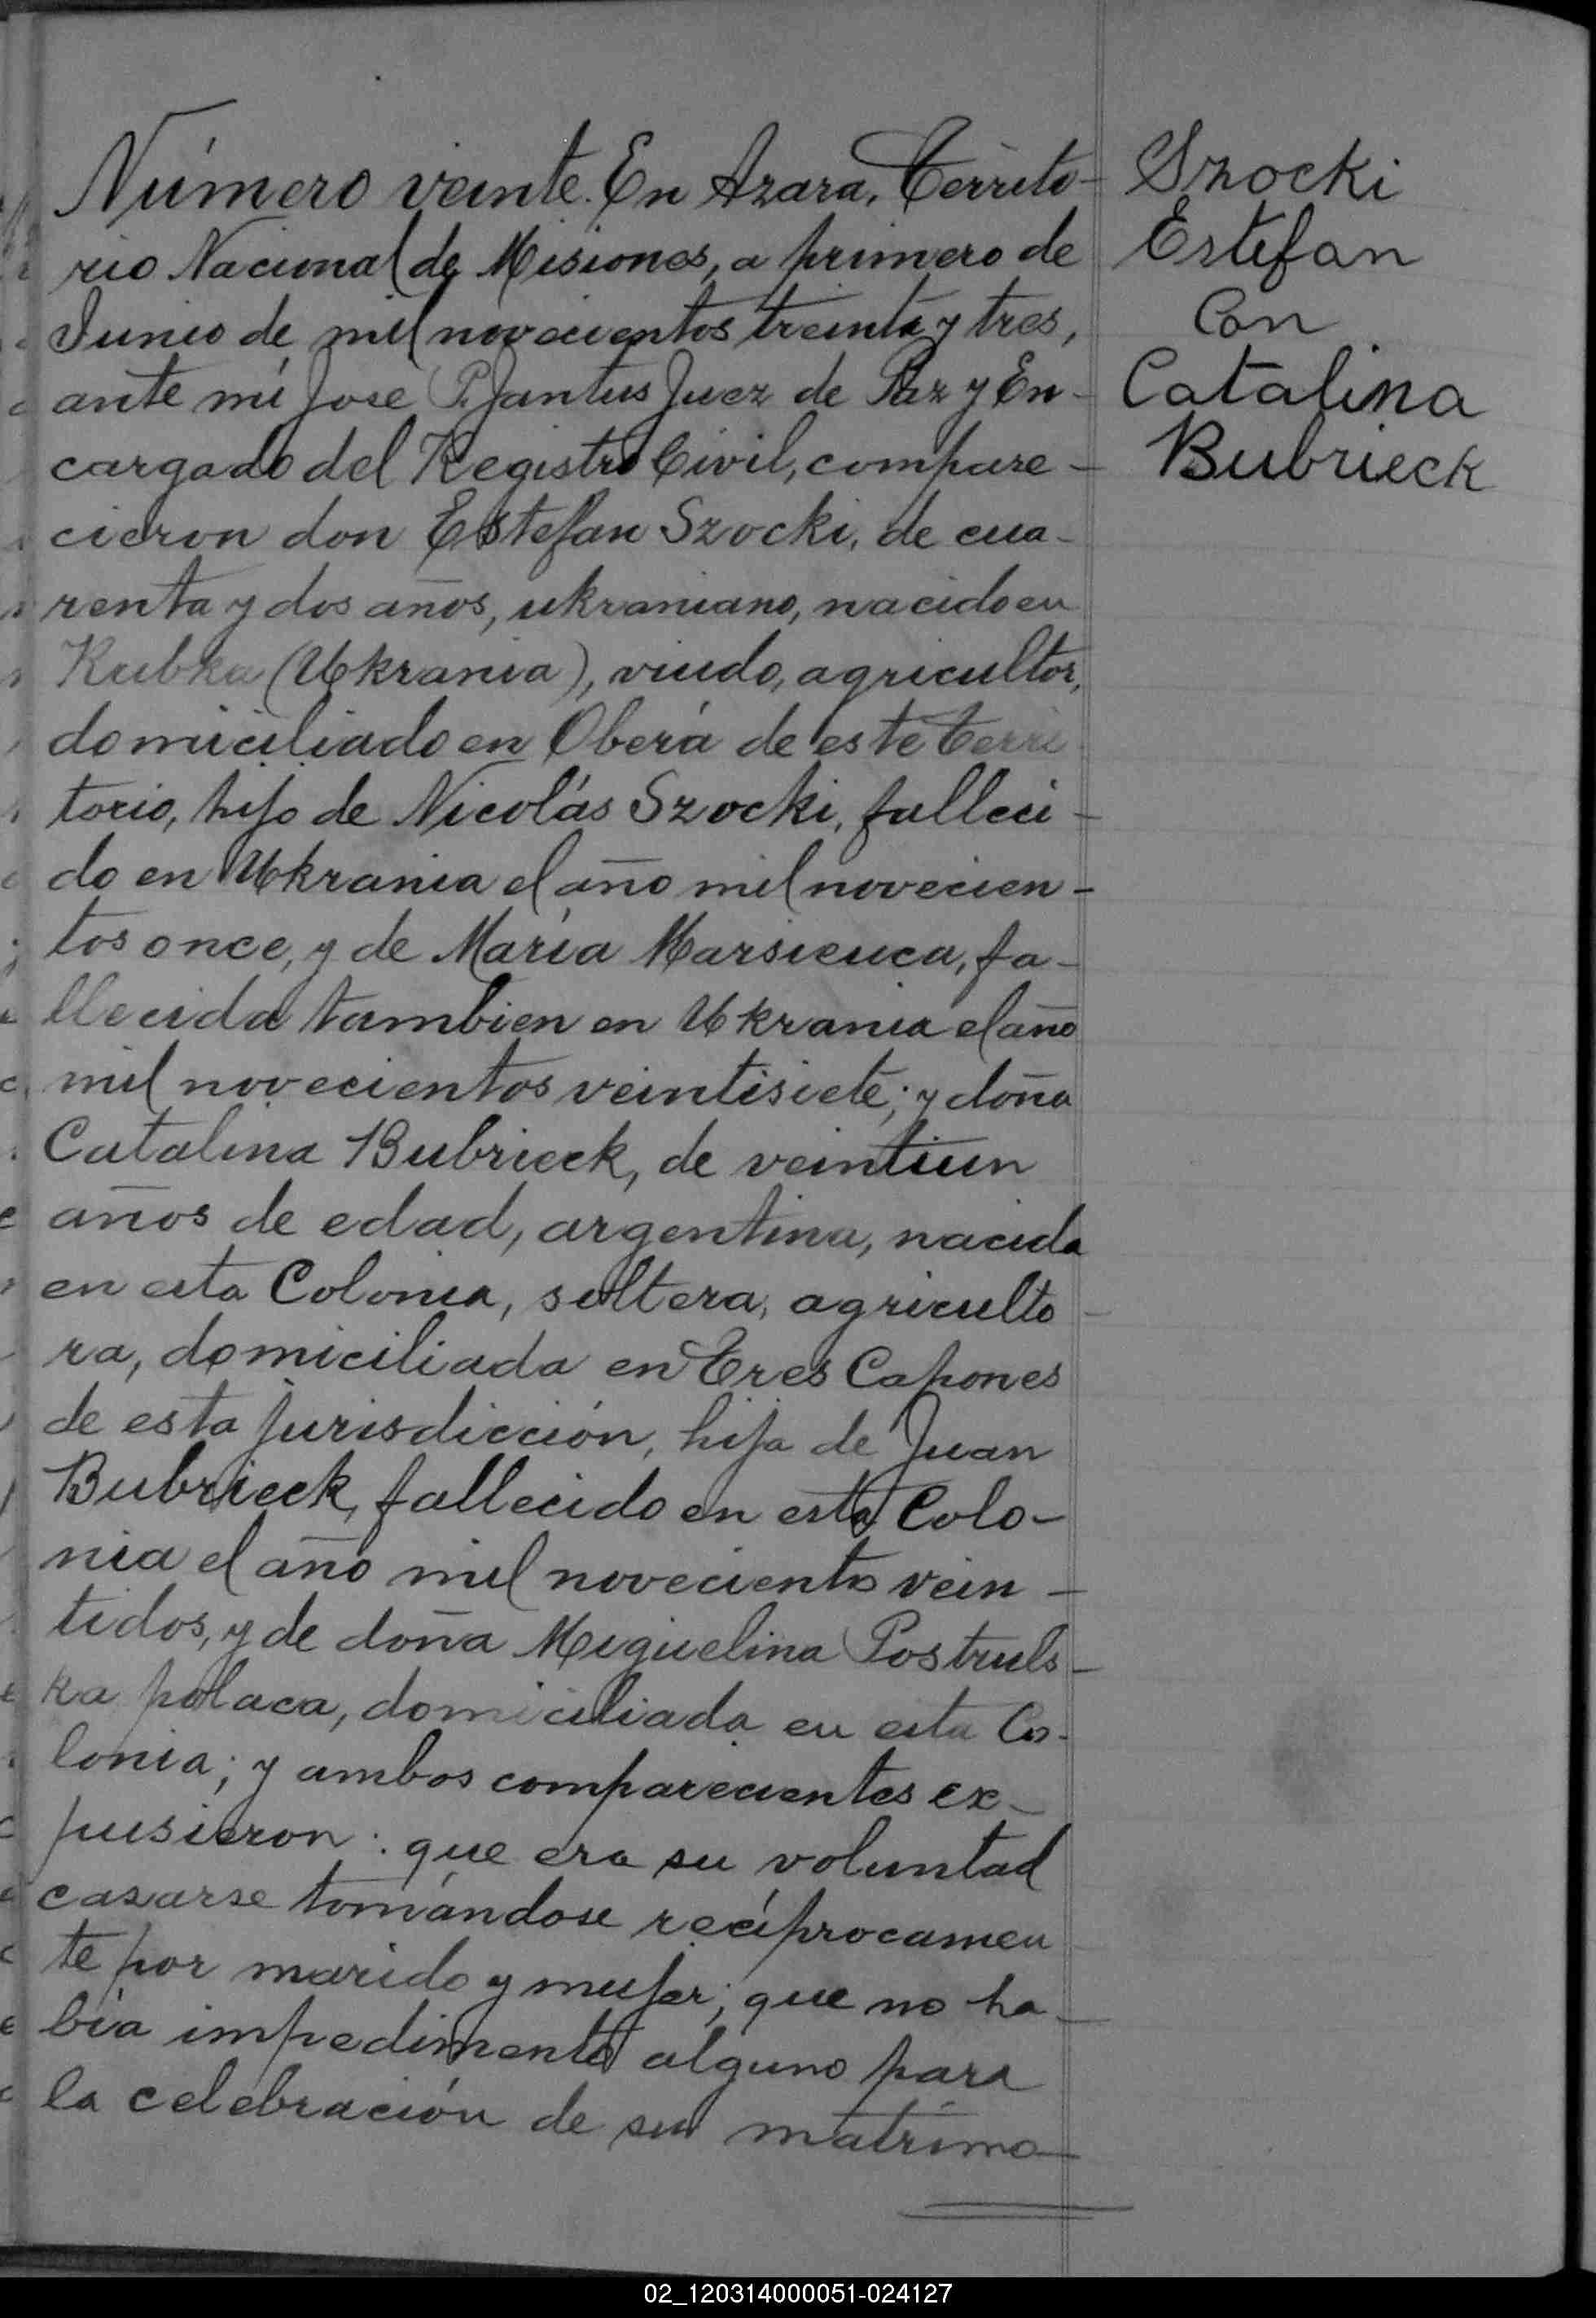 Número veinte. En Azara, Territo-
rio Nacional de Misiones, a primero de
Junio de mil novecientos treinta y tres,
ante mi José P. Jantus Juez de Paz y En-
cargado del Registro Civil, compare-
cieron don Estefan Szocki, de cua-
renta y dos años, ukraniano, nacido en
Kubka (Ukrania), viudo, agricultor,
domiciliado en Oberá de este Terri
torio, hijo de Nicolás Szocki, falleci-
do en Ukrania el año mil novecien-
tos once, y de María Marsieuca, fa-
llecida tambien en Ukrania el año
mil novecientos veintisiete; y doña
Catalina Bubrieck, de veintiun
años de edad, argentina, nacida
en esta Colonia, soltera, agriculto-
ra, domiciliada en Tres Capones
de esta jurisdicción, hija de Juan
Bubrieck, fallecido en esta Colo-
nia el año mil novecientos vein-
tidos, y de doña Miguelina Postruls-
ka polaca, domiciliada en esta Co-
lonia; y ambos comparecientes ex-
pusieron: que era su voluntad
casarse tomándose recíprocamen
te por marido y mujer; que no ha-
bía impedimento alguno para
la celebración de su matrimo-
Szocki
Estefan
Con
Catalina
Bubrieck
02_120314000051-024127